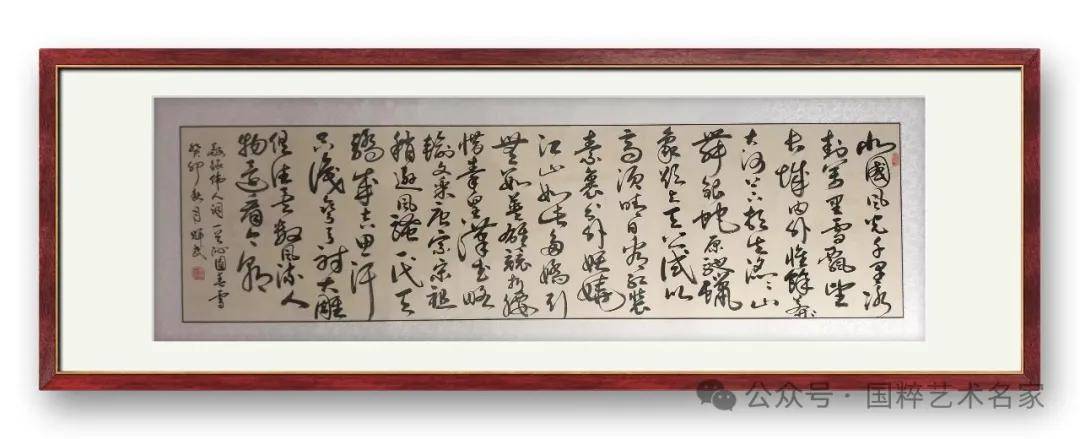 北國風光千里冰
封萬里雪飄望
長城内外惟餘莽々
大河上下頓失滔々山
舞銀蛇原馳蠟
象欲與天公試比
高須晴日看紅裝
素裹分外妖嬈
江山如此多嬌引
無數英雄競折腰
惜秦皇漢武略
輸文采唐宗宋祖
稍遜風騷一代天
驕成吉思汗
只識彎弓射大雕
俱往矣數風流人
物還看今朝
敬錄偉人詞一首沁園春雪
癸卯秋月輝武
公众号·国粹艺术名家